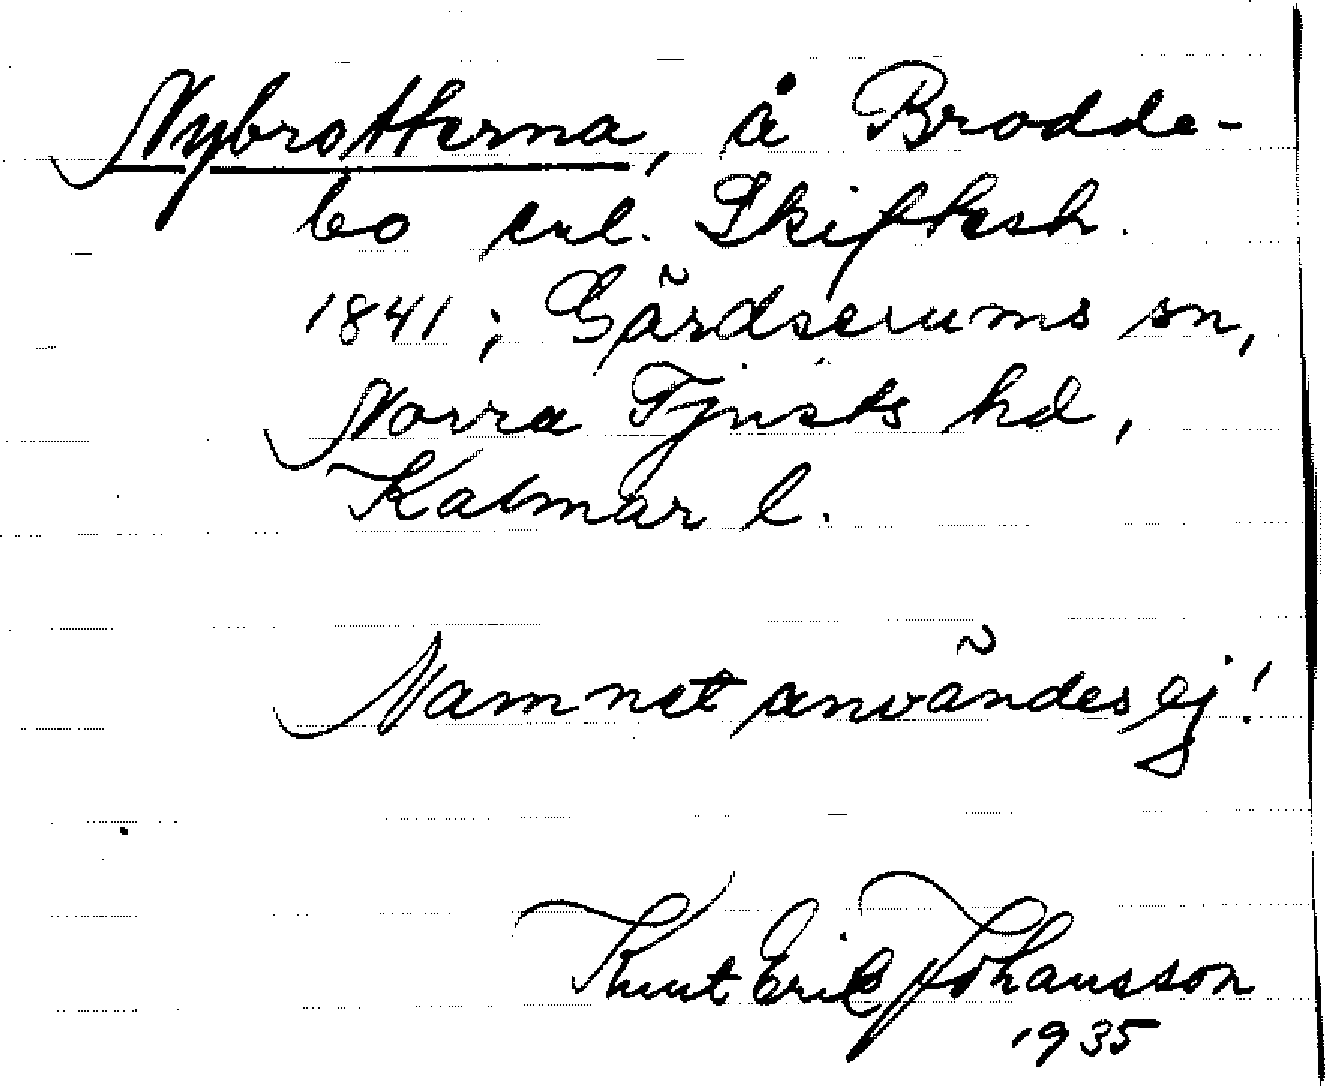 Nybrotterna, å Brodde-
bo enl. Skiftesh.
1841; Gärdserums sn,
Norra Tjusts hd,
Kalmar l.
Namnet användes ej!
Knut Eric Johansson
1935